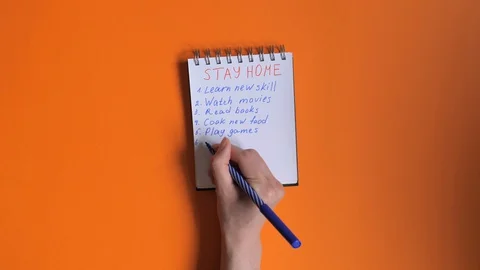 STAY HOME
1. Learn new skill
2. Watch movies
3. Read books
4. Cook new food
5. Play games